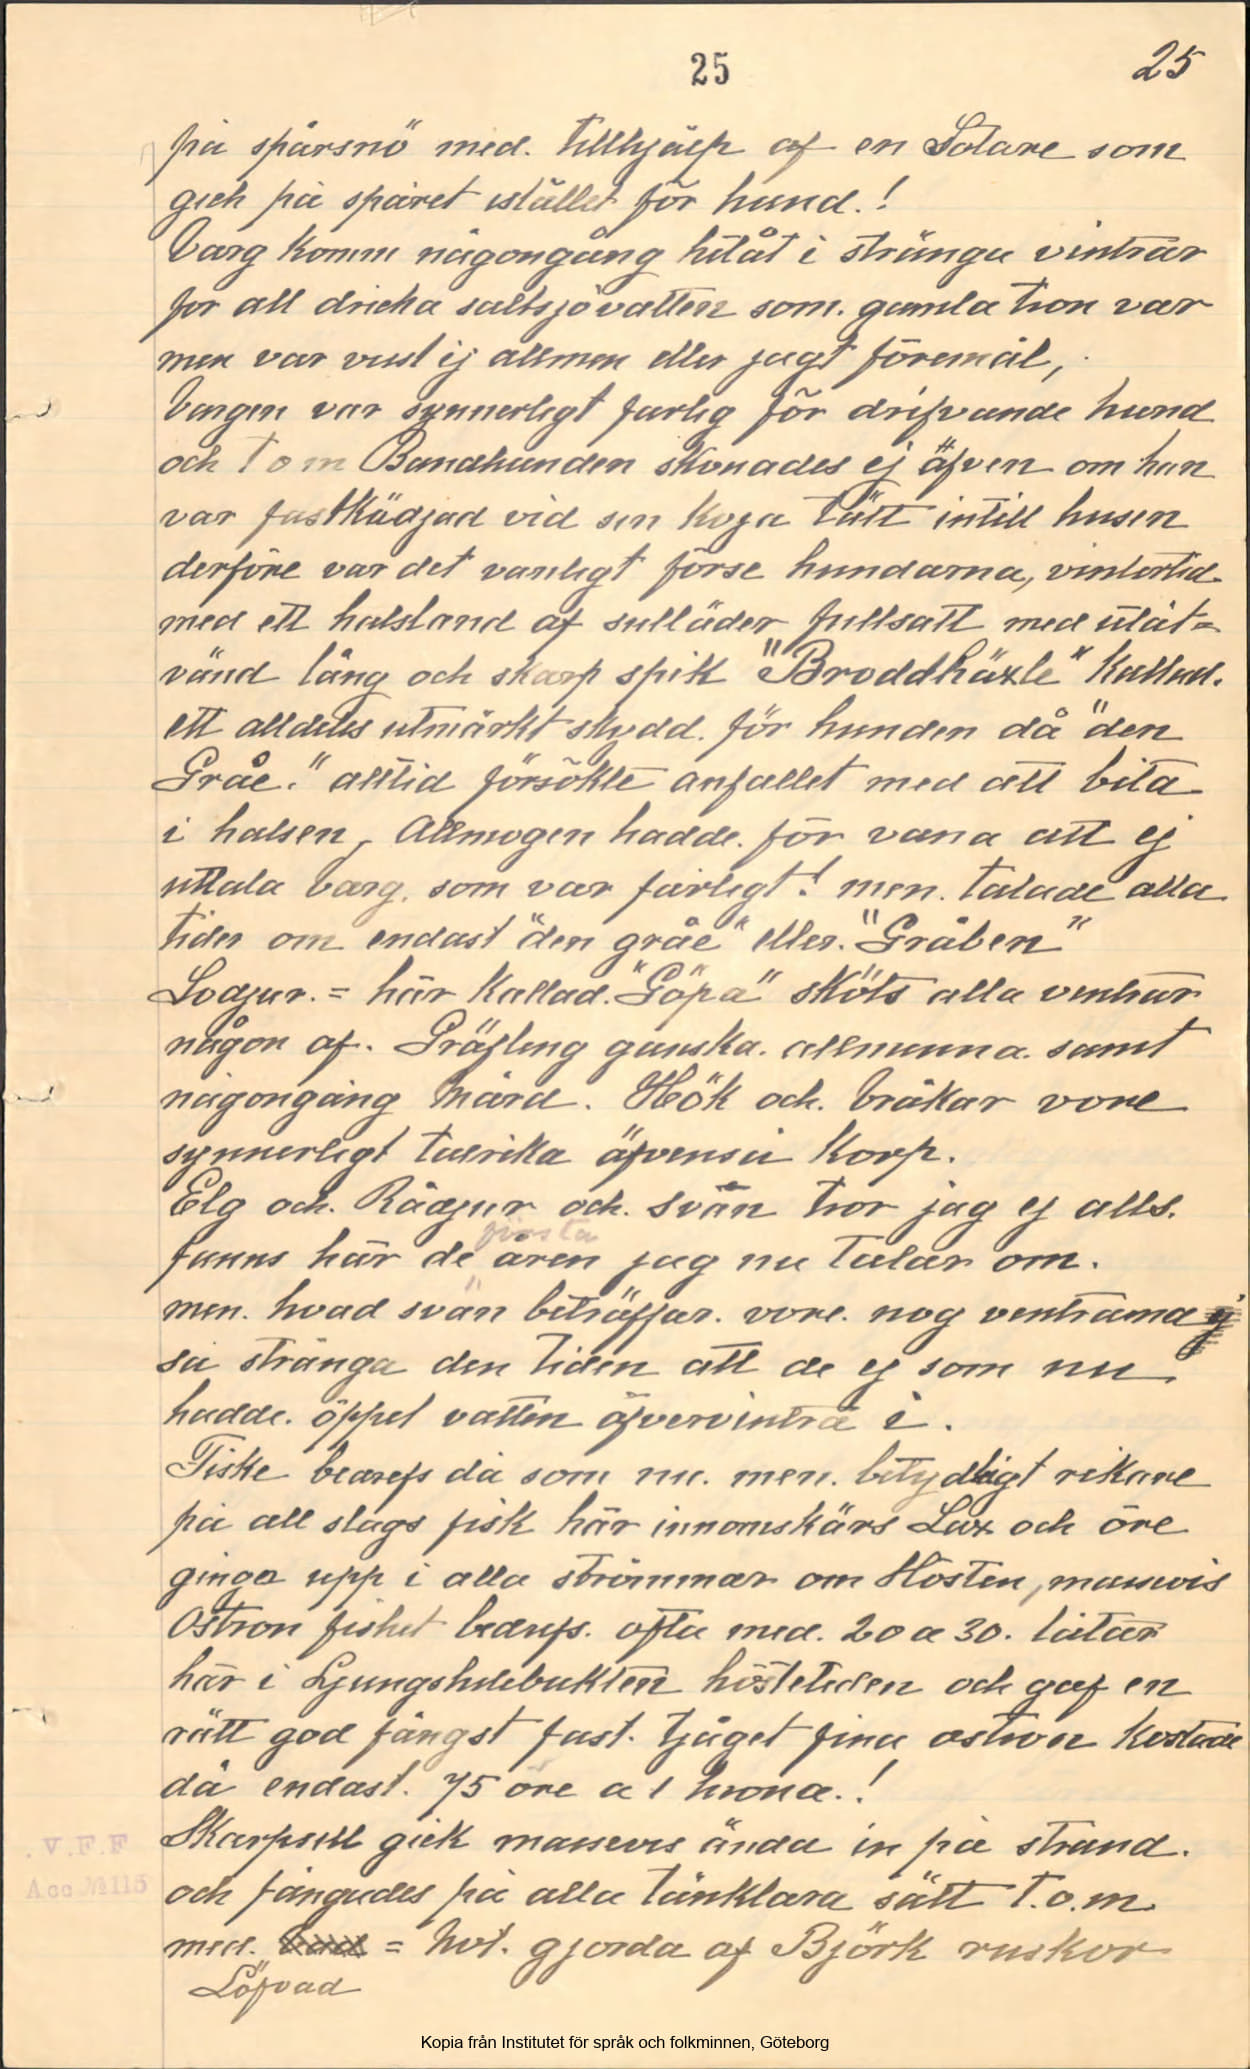 25
25
på spårsnö med. tillhjälp af en Sotare som
gick på spåret istället för hund.!
Varg komm någongång hitåt i stränga vintrar
for att dricka saltsjövatten som. gamla tron var
men var visst ej allmen eller jagt föremål,
Vargen var synnerligt farlig för drifvande hund
och tom Bandhunden skonades ej äfven om han
var fastkädjad vid sin koja tätt intill husen
derföre var det vanligt förse hundarna, vintertid.
med ett halsband af sulläder fullsatt med utåt=
vänd lång och skarp spik "Broddhäxle" kallad.
ett alldeles utmärkt skydd. för hunden då "den
Gråe." alltid försökte anfallet med att bita
i halsen, Allmogen hadde. för vana att ej
uttala varg. som var farligt! men. talade alla
tider om endast "den gråe" eller. "Gråben"
Lodjur. = här kallad. "Göpa" sköts alla ventrar
någon af. Gräfling ganska. allmenna. samt
någongång Mård. Hök och. Vråkar vore
synnerligt talrika äfvenså Korp.
Elg och. Rådjur och. svan tror jag ej alls.
fanns här de första åren jag nu talar om.
men. hvad svan beträffar. vore. nog ventrarna ej
så stränga den tiden att de ej som nu
hadde. öppet vatten öfvervintra i.
Fiske bedrefs då som nu. men. betydligt rikare
på all slags fisk här innomskärs Lax och öre
gingo upp i alla strömmar om Hösten, massvis
Ostron fisket bedrefs. ofta med. 20 a 30. båtar
här i Ljungskilebukten hösttiden och gaf en
rätt god fångst fast. tjåget fina ostron kostade
då endast. 75 öre a 1 krona.!
Skarpsill gick massvis ända in på strand.
och fångades på alla tänkbara sätt t.o.m
med. = Not. gjorda af Björk ruskor
Löfvad
V.F.F
Acc № 115
Kopia från Institutet för språk och folkminnen, Göteborg